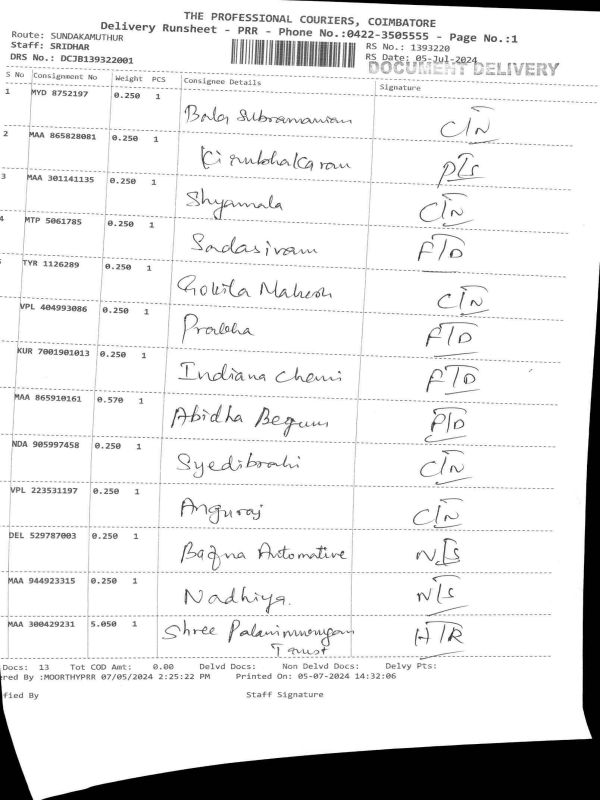 THE PROFESSIONAL COURIERS, COIMBATORE
Delivery Runsheet - PRR - Phone No.:0422-3505555 - Page No.:1
Route: SUNDAKAMUTHUR
RS No.: 1393220
Staff: SRIDHAR
RS Date: 05-Jul-2024
DRS No.: DCJB139322001
DOCUMENT DELIVERY
S No Consignment No Weight PCS Consignee Details Signature
1 MYD 8752197 0.250 1
Bala Subramaniam C/N
2 MAA 865828081 0.250 1
Kirubhakaran P/S
3 MAA 301141135 0.250 1
Shyamala C/N
4 MTP 5061785 0.250 1
Sadasivam F/D
TYR 1126289 0.250 1
Gokila Mahesh C/N
VPL 404993086 0.250 1
Prabha F/D
KUR 7001901013 0.250 1
Indiana Chemi F/D
MAA 865910161 0.570 1
Abidha Begum P/D
NDA 905997458 0.250 1
Syedibrahi C/N
VPL 223531197 0.250 1
Anguraj C/N
DEL 529787003 0.250 1
Bafna Automative N/S
MAA 944923315 0.250 1
Nadhiya. N/S
MAA 300429231 5.050 1
Shree Palanimurugan H/R
Trust
Docs: 13 Tot COD Amt: 0.00 Delvd Docs: Non Delvd Docs: Delvy Pts:
red By :MOORTHYPRR 07/05/2024 2:25:22 PM Printed On: 05-07-2024 14:32:06
fied By Staff Signature